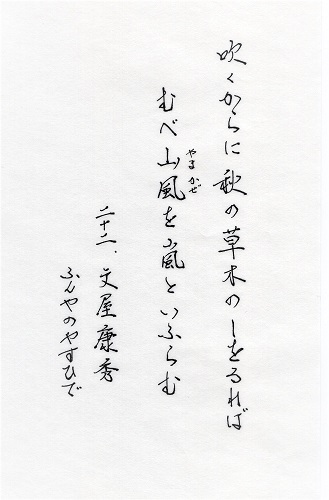 吹くからに秋の草木のしをるれば
むべ山風を嵐といふらむ
やまかぜ
二十二、文屋康秀
ふんやのやすひで